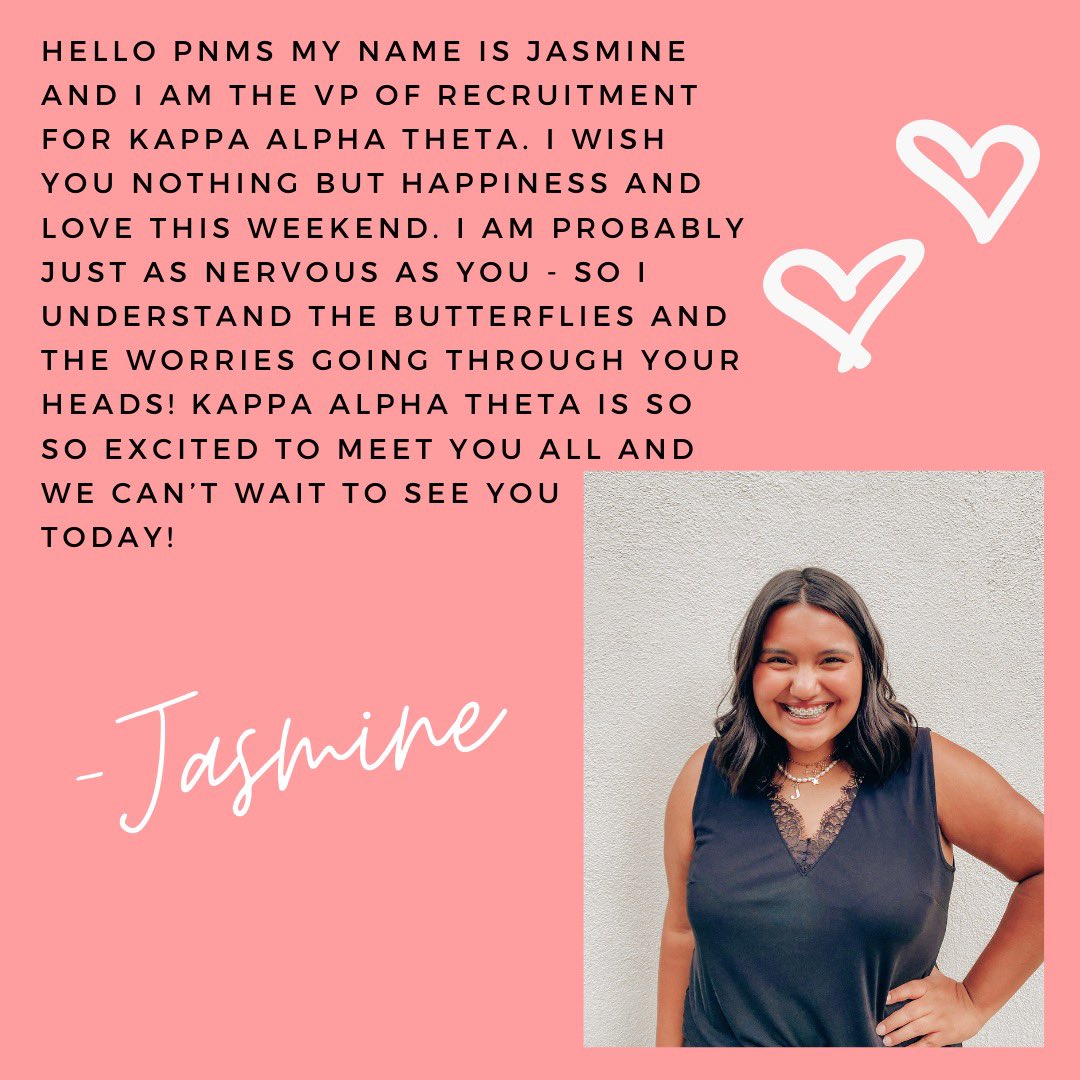 HELLO PNMS MY NAME IS JASMINE
AND I AM THE VP OF RECRUITMENT
FOR KAPPA ALPHA THETA. I WISH
YOU NOTHING BUT HAPPINESS AND
LOVE THIS WEEKEND. I AM PROBABLY
JUST AS NERVOUS AS YOU - SO I
UNDERSTAND THE BUTTERFLIES AND
THE WORRIES GOING THROUGH YOUR
HEADS! KAPPA ALPHA THETA IS SO
SO EXCITED TO MEET YOU ALL AND
WE CAN’T WAIT TO SEE YOU
TODAY!
-Jasmine